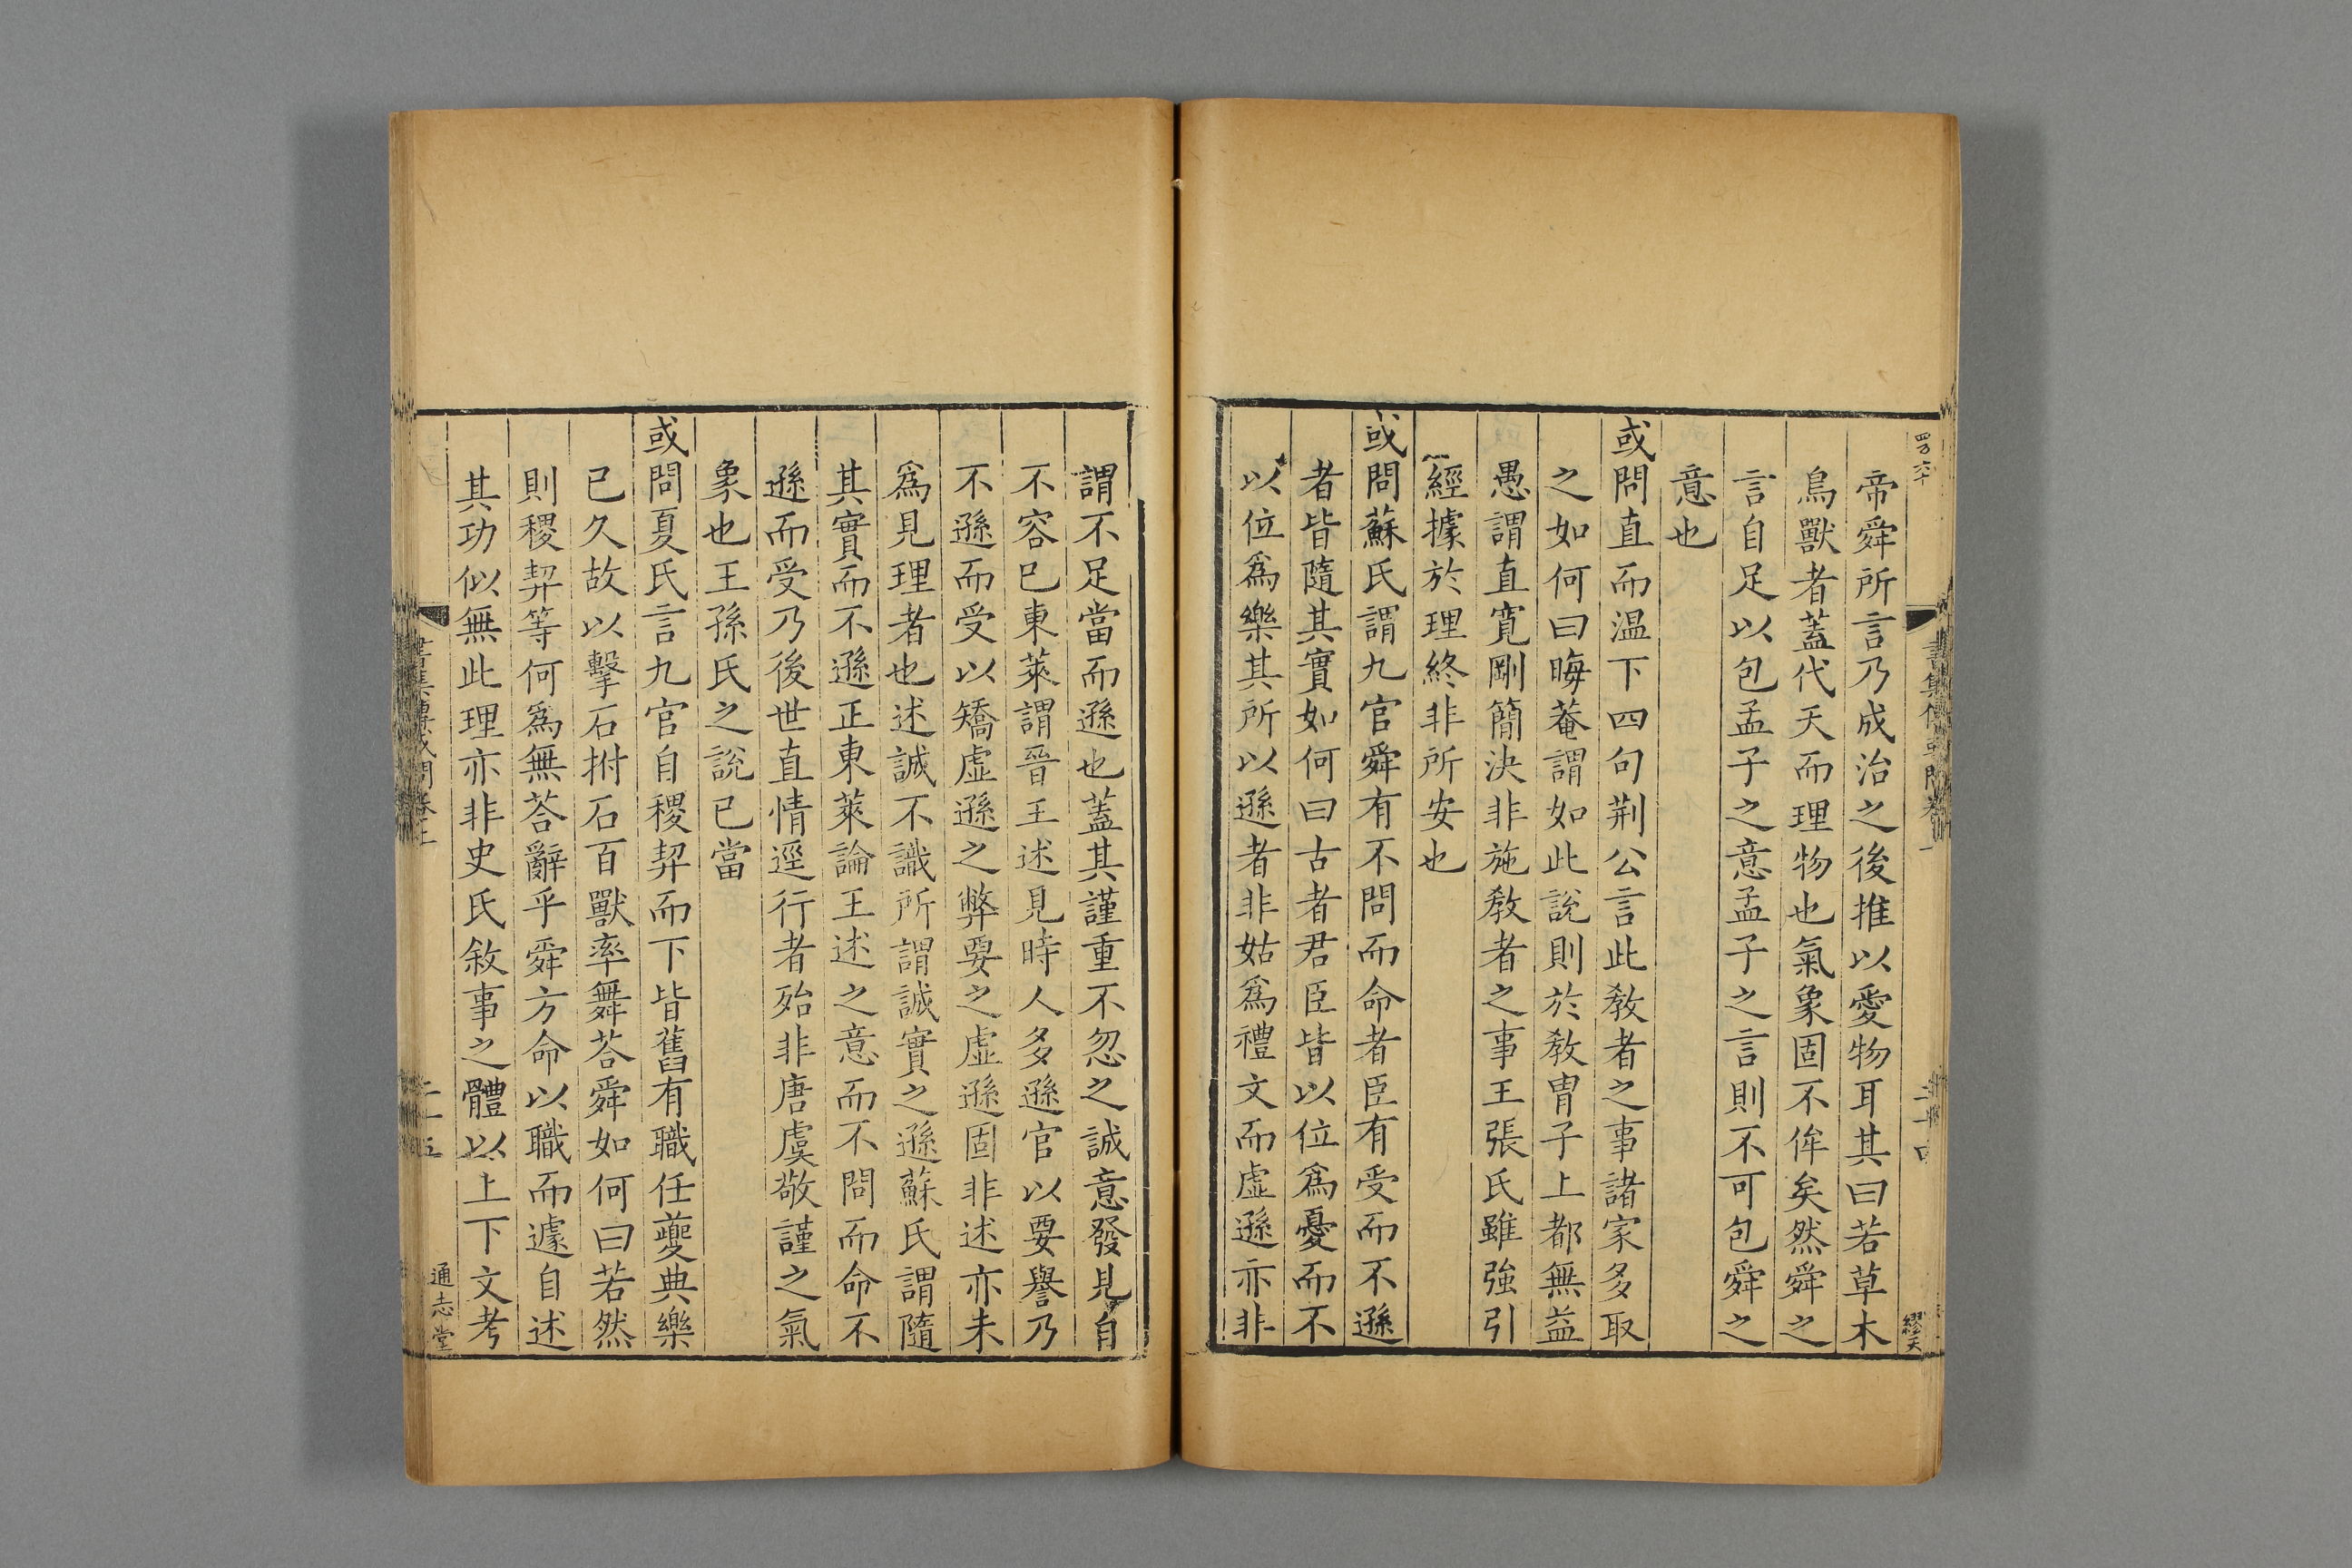 帝舜所言乃成治之後推以愛物耳其曰若草木
鳥獸者蓋代天而理物也氣象固不侔矣然舜之
言自足以包孟子之意孟子之言則不可包舜之
意也
或問直而温下四句荆公言此教者之事諸家多取
之如何曰晦菴謂如此說則於教胄子上都無益
愚謂直寛剛簡決非施教者之事王張氏雖強引
經據於理終非所安也
或問蘇氏謂九官舜有不問而命者臣有受而不遜
者皆隨其實如何曰古者君臣皆以位爲憂而不
以位爲樂其所以遜者非姑爲禮文而虛遜亦非
謂不足當而遜也蓋其謹重不忽之誠意發見自
不容已東萊謂晉王述見時人多遜官以要譽乃
不遜而受以矯虛遜之弊要之虛遜固非述亦未
爲見理者也述誠不識所謂誠實之遜蘇氏謂隨
其實而不遜正東萊論王述之意而不問而命不
遜而受乃後世直情逕行者殆非唐虞敬謹之氣
象也王孫氏之說已當
或問夏氏言九官自稷契而下皆舊有職任夔典樂
已久故以擊石拊石百獸率舞荅舜如何曰若然
則稷契等何爲無荅辭乎舜方命以職而遽自述
其功似無此理亦非史氏敘事之體以上下文考
通志堂